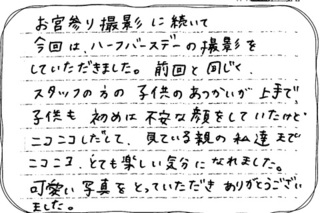 お宮参り撮影に続いて
今回は、ハーフバースデーの撮影を
していただきました。前回と同じく、
スタッフの方の子供のあつかいが上手で、
子供も初めは不安な顔をしていたけど
ニコニコしだして、見ている親の私達まで
ニコニコ、とても楽しい気分になれました。
可愛い写真をとっていただきありがとうござい
ました。